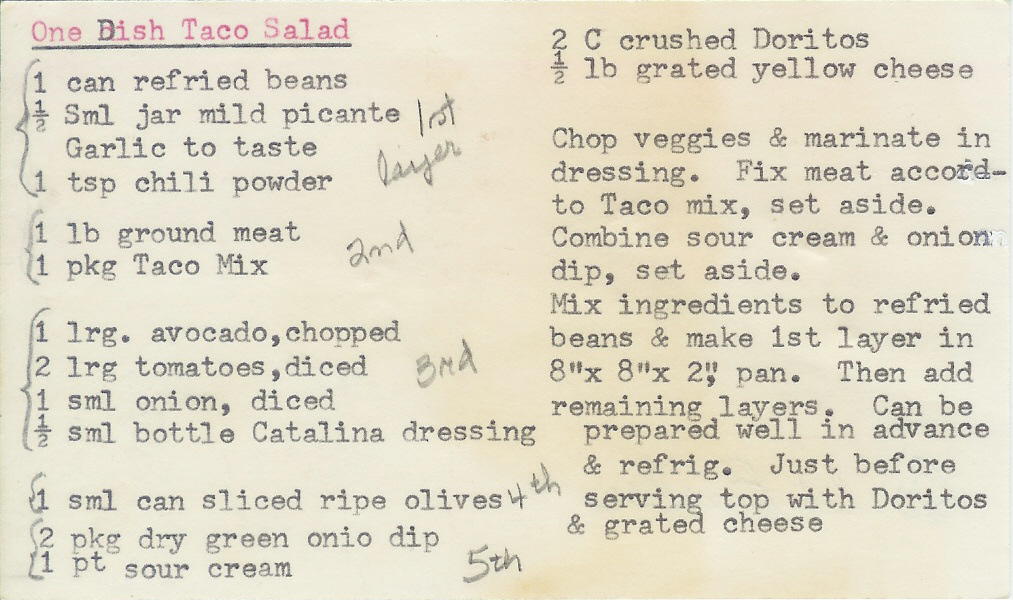 One Dish Taco Salad
1 can refried beans
½ Sml jar mild picante
Garlic to taste
1 tsp chili powder
1st
layer
1 lb ground meat
1 pkg Taco Mix
2nd
1 lrg. avocado,chopped
2 lrg tomatoes,diced
1 sml onion, diced
½ sml bottle Catalina dressing
3rd
1 sml can sliced ripe olives 4th
2 pkg dry green onio dip
1 pt sour cream
5th
2 C crushed Doritos
½ lb grated yellow cheese
Chop veggies & marinate in
dressing. Fix meat accord-
to Taco mix, set aside.
Combine sour cream & onion
dip, set aside.
Mix ingredients to refried
beans & make 1st layer in
8"x 8"x 2", pan. Then add
remaining layers. Can be
prepared well in advance
& refrig. Just before
serving top with Doritos
& grated cheese